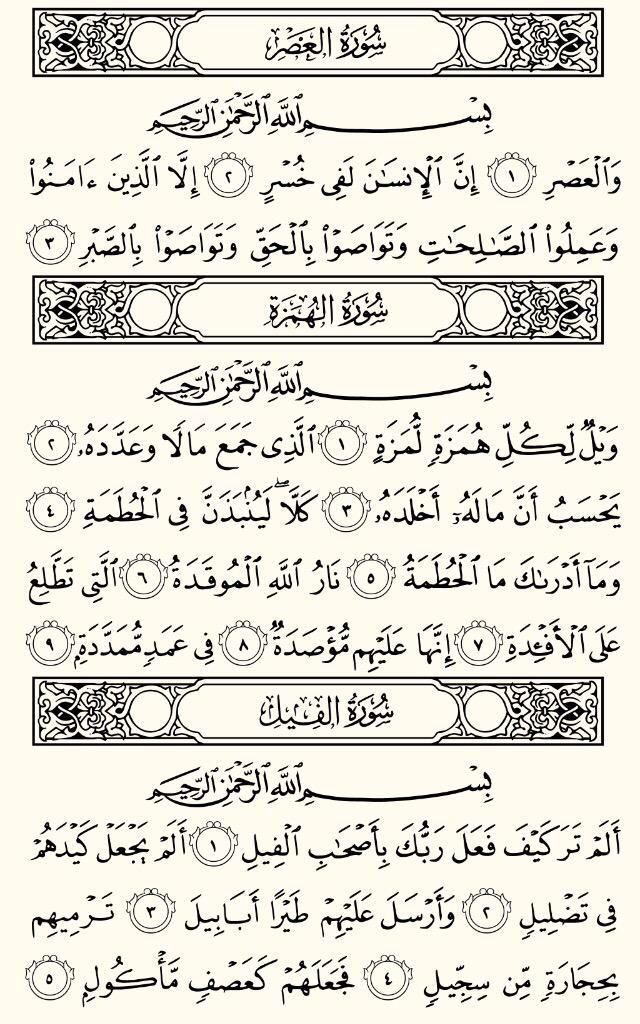 سُورَةُ العَصْرِ
بِسْمِ ٱللَّهِ ٱلرَّحْمَٰنِ ٱلرَّحِيمِ
وَٱلْعَصْرِ ١ إِنَّ ٱلْإِنسَٰنَ لَفِى خُسْرٍ ٢ إِلَّا ٱلَّذِينَ ءَامَنُوا۟
وَعَمِلُوا۟ ٱلصَّٰلِحَٰتِ وَتَوَاصَوْا۟ بِٱلْحَقِّ وَتَوَاصَوْا۟ بِٱلصَّبْرِ ٣
سُورَةُ الهُمَزَةِ
بِسْمِ ٱللَّهِ ٱلرَّحْمَٰنِ ٱلرَّحِيمِ
وَيْلٌ لِّكُلِّ هُمَزَةٍ لُّمَزَةٍ ١ ٱلَّذِى جَمَعَ مَالًا وَعَدَّدَهُۥ ٢
يَحْسَبُ أَنَّ مَالَهُۥٓ أَخْلَدَهُۥ ٣ كَلَّا ۖ لَيُنۢبَذَنَّ فِى ٱلْحُطَمَةِ ٤
وَمَآ أَدْرَىٰكَ مَا ٱلْحُطَمَةُ ٥ نَارُ ٱللَّهِ ٱلْمُوقَدَةُ ٦ ٱلَّتِى تَطَّلِعُ
عَلَى ٱلْأَفْـِٔدَةِ ٧ إِنَّهَا عَلَيْهِم مُّؤْصَدَةٌ ٨ فِى عَمَدٍ مُّمَدَّدَةٍۭ ٩
سُورَةُ الفِيلِ
بِسْمِ ٱللَّهِ ٱلرَّحْمَٰنِ ٱلرَّحِيمِ
أَلَمْ تَرَ كَيْفَ فَعَلَ رَبُّكَ بِأَصْحَٰبِ ٱلْفِيلِ ١ أَلَمْ يَجْعَلْ كَيْدَهُمْ
فِى تَضْلِيلٍ ٢ وَأَرْسَلَ عَلَيْهِمْ طَيْرًا أَبَابِيلَ ٣ تَرْمِيهِم
بِحِجَارَةٍ مِّن سِجِّيلٍ ٤ فَجَعَلَهُمْ كَعَصْفٍ مَّأْكُولٍۭ ٥